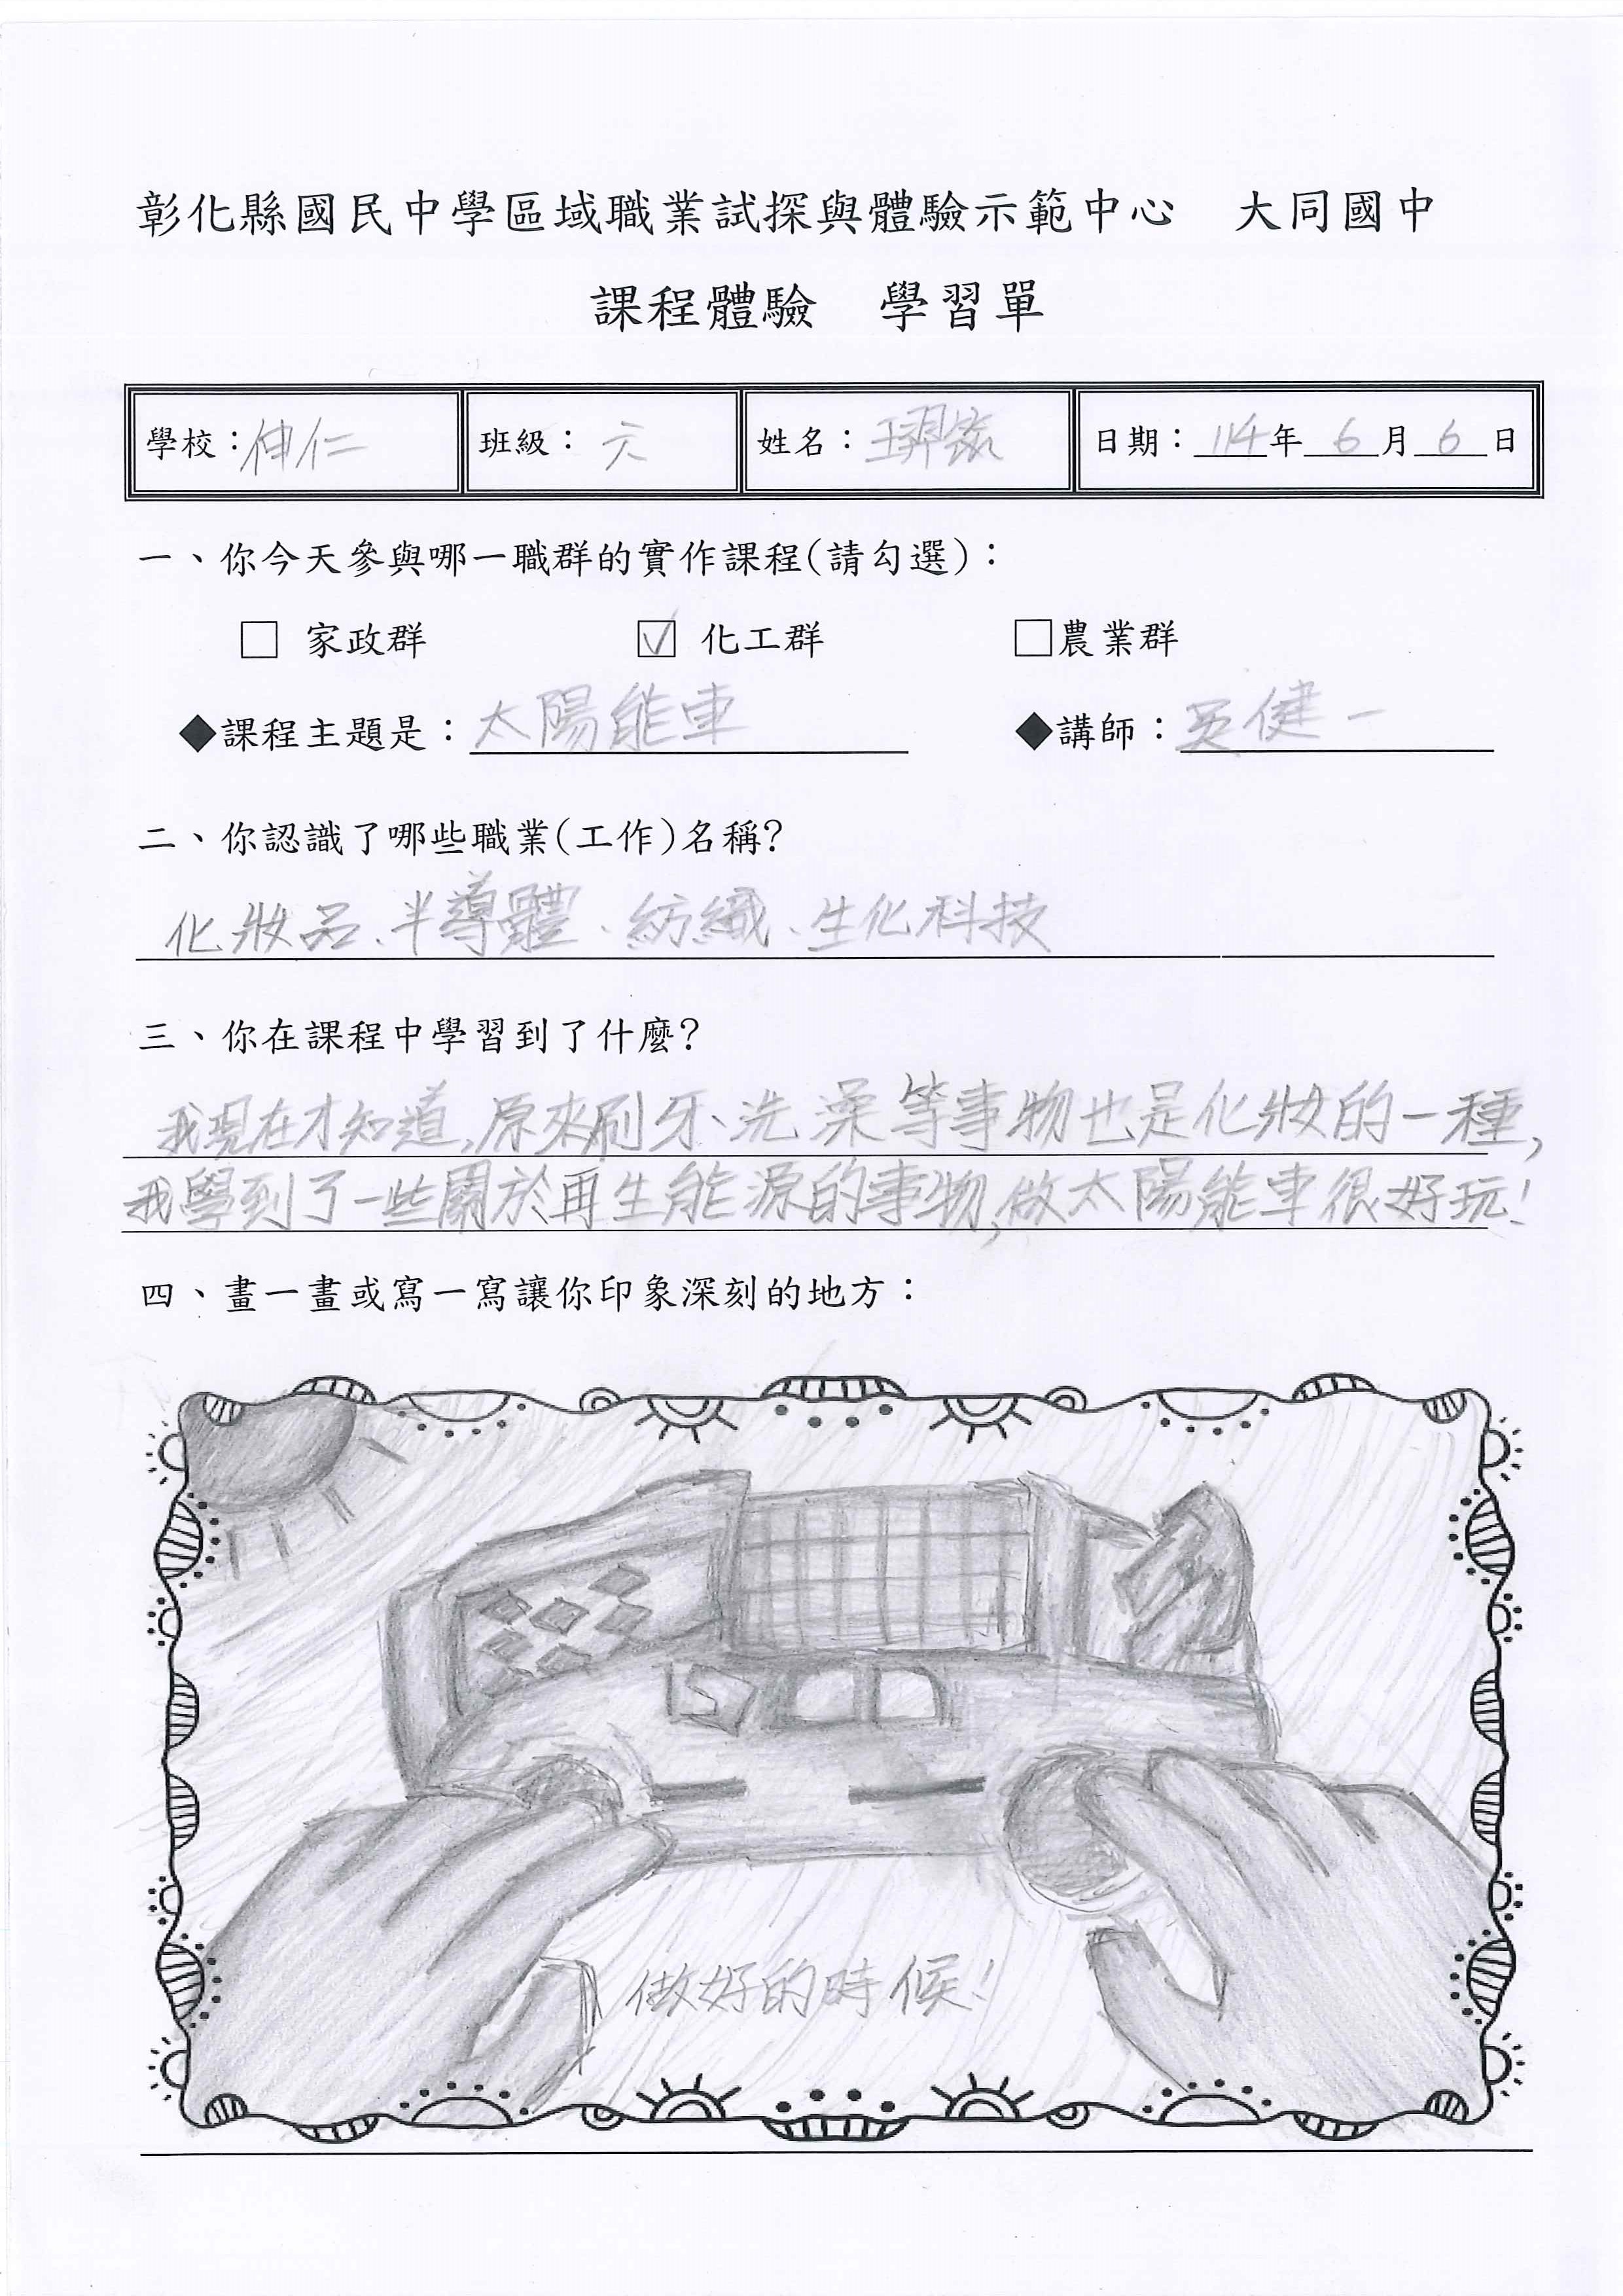 彰化縣國民中學區域職業試探與體驗示範中心　大同國中
課程體驗　學習單
學校：伸仁 班級：六 姓名： 日期：114年6月6日
一、你今天參與哪一職群的實作課程(請勾選)：
□ 家政群 ☑ 化工群 □農業群
◆課程主題是：太陽能車 ◆講師：吳健一
二、你認識了哪些職業(工作)名稱?
化妝品、半導體、紡織、生化科技
三、你在課程中學習到了什麼?
我現在才知道,原來刷牙、洗澡等事物也是化妝的一種,
我學到了一些關於再生能源的事物,做太陽能車很好玩!
四、畫一畫或寫一寫讓你印象深刻的地方：
做好的時候!